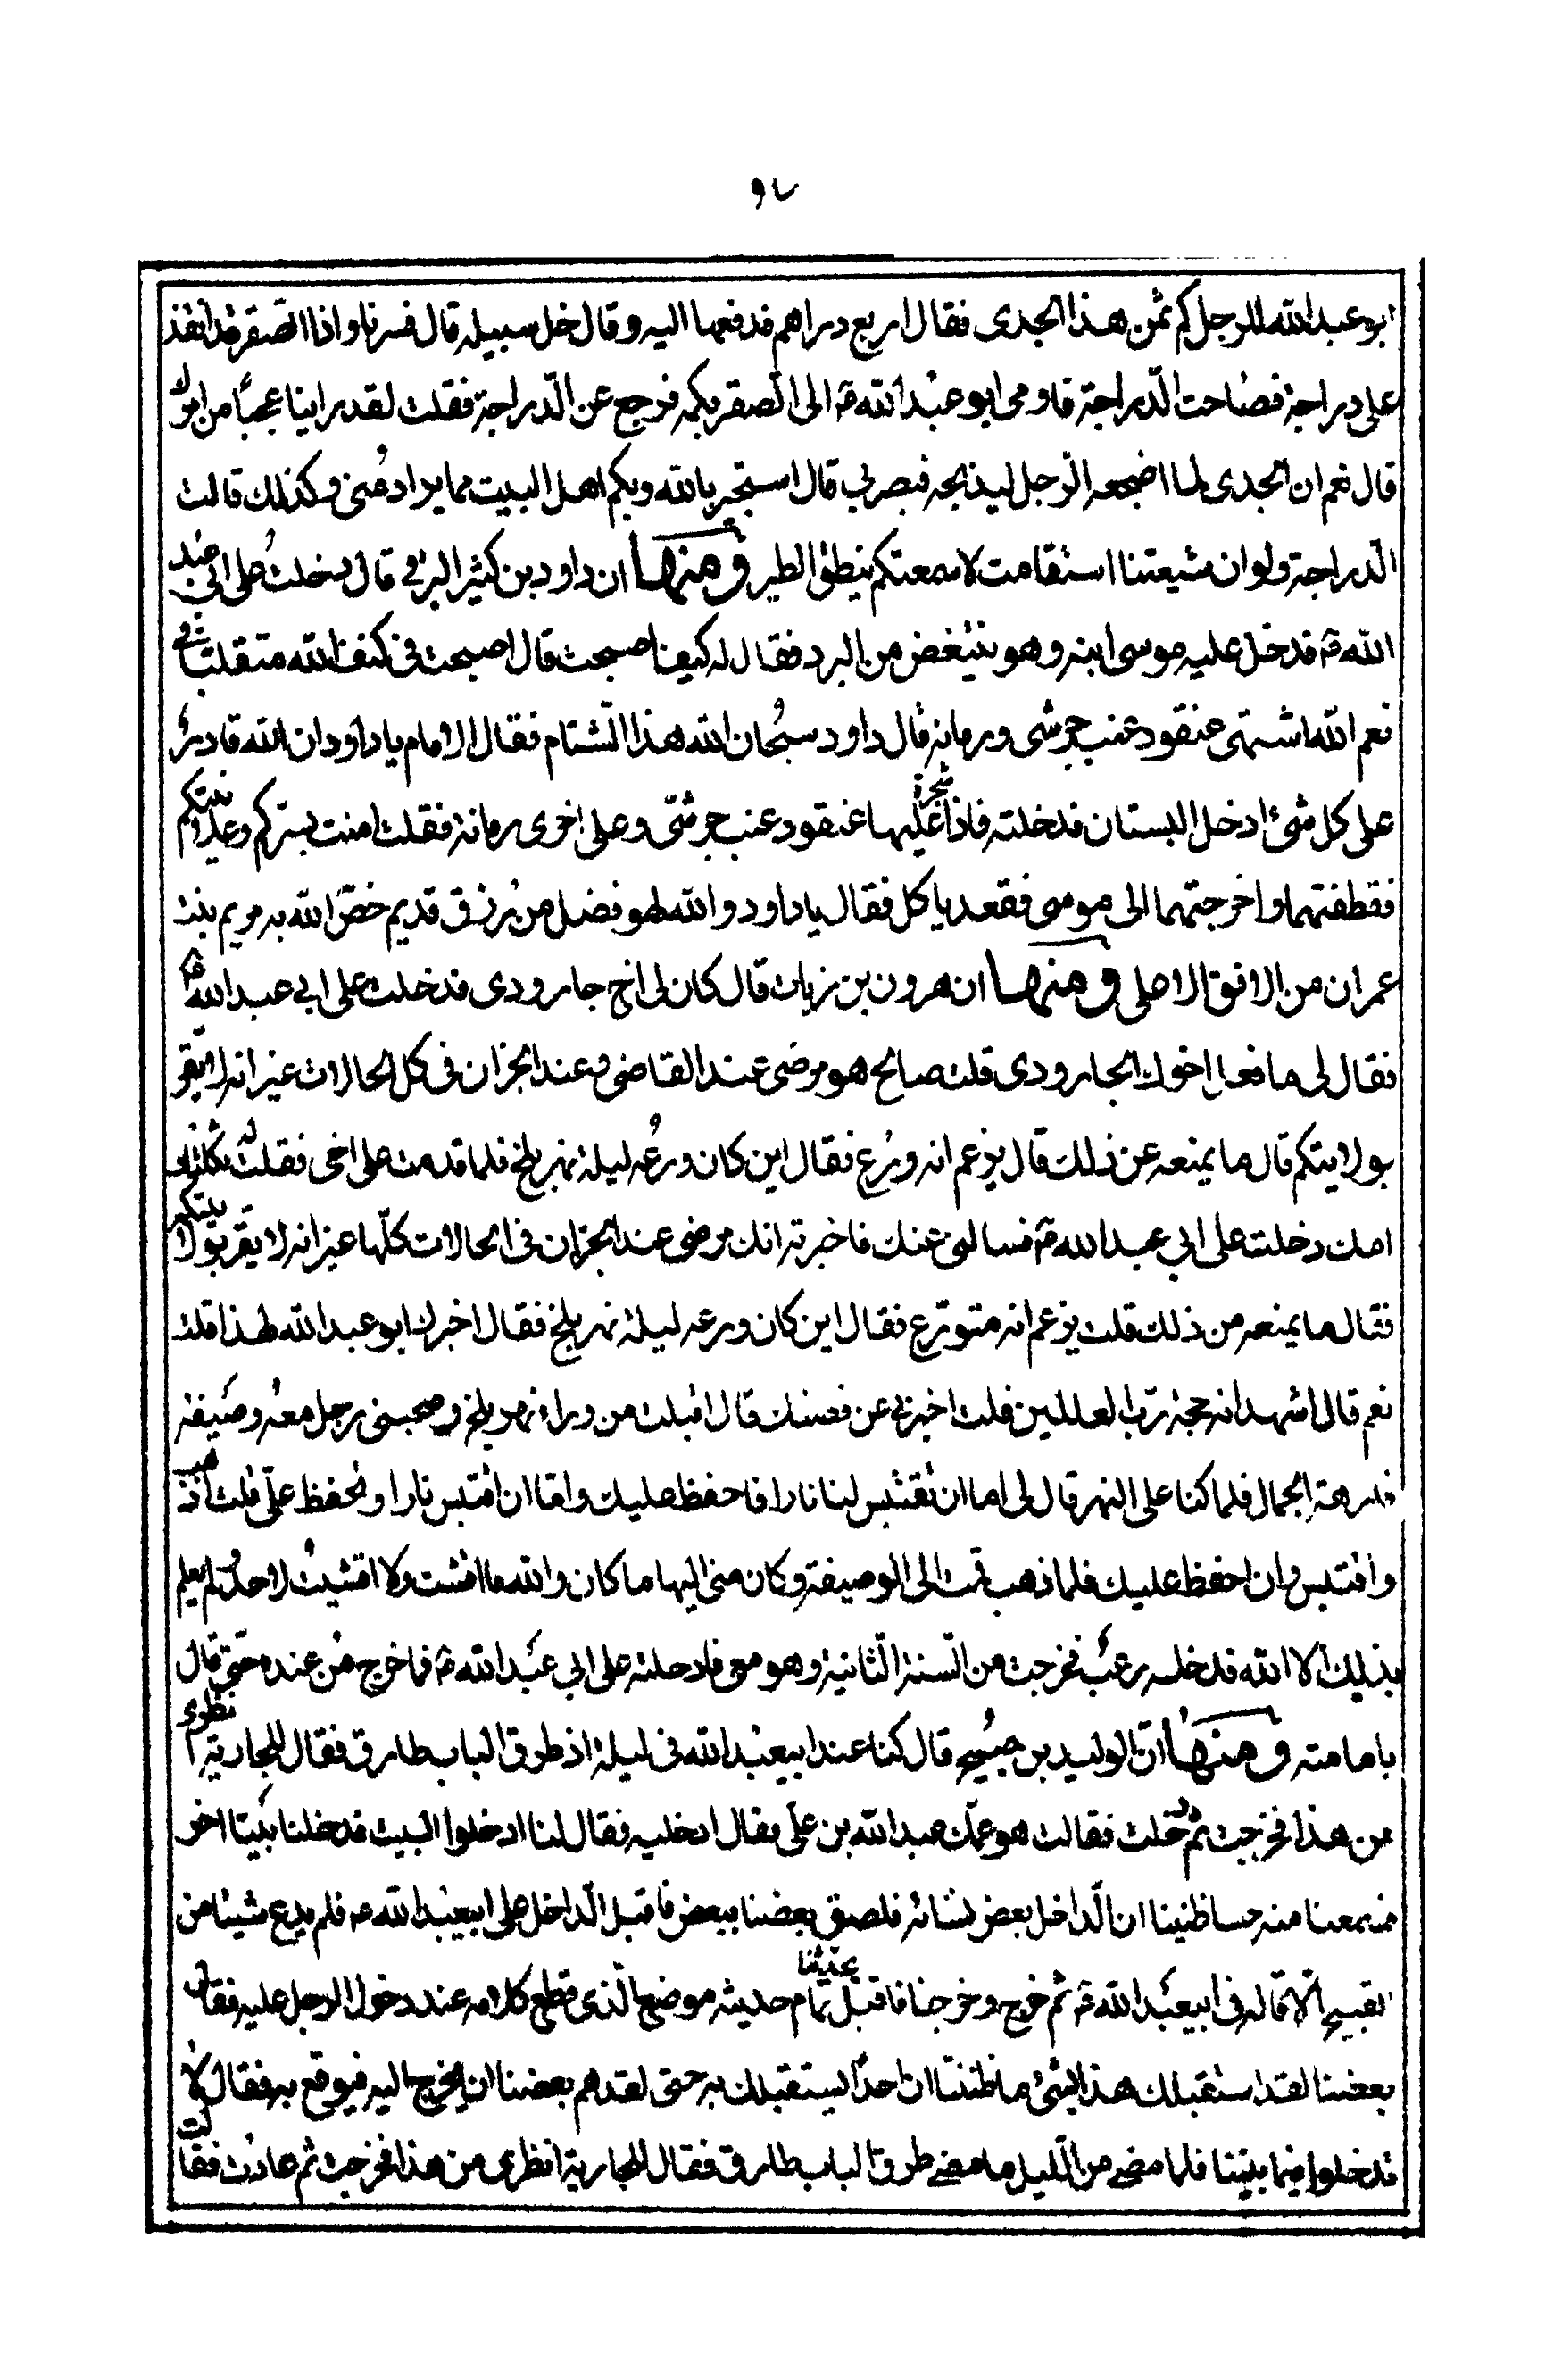 ابو عبد الله للرجل كم ثمن هذا الجدى فقال اربع دراهم فدفعها اليه وقال خل سبيله قال فسرنا واذا الصقر قد انقض
على دراجة فصاحت الدراجة فاومى ابو عبد الله ع الى الصقر بكمه فرجع عن الدراجة فقلت لقد راينا عجبا من امرك
قال نعم ان الجدى لما اضجعه الرجل ليذبحه فبصر بي قال استجير بالله وبكم اهل البيت مما يراد منى وكذلك قالت
الدراجة ولو ان شيعتنا استقامت لاسمعتكم بنطق الطير ومنها ان داود بن كثير البرقي قال دخلت على ابي عبد
الله ع فدخل عليه موسى ابنه وهو ينتفض من البرد فقال له كيف اصبحت قال اصبحت في كنف الله متقلبا في
نعم الله اشتهى عنقود عنب جرشى ورمانه قال داود سبحان الله هذا الشتام فقال الامام يا داود ان الله قادر
على كل شئ ادخل البستان فدخلته فاذا شجرة عليها عنقود عنب جرشى وعلى اخرى رمانة فقلت امنت بسركم وعلانيتكم
فقطفتهما واخرجتهما الى موسى فقعد ياكل فقال يا داود والله لهو فضل من رزق قديم خص الله به مريم بنت
عمران من الافق الاعلى ومنها ان هرون بن زيات قال كان لى اخ جارودى فدخلت على ابي عبد الله ع
فقال لى ما فعل اخوك الجارودى قلت صالح هو مرضى عند القاضى وعند الجيران في كل الحالات غير انه لا يقر
بولايتكم قال ما يمنعه عن ذلك قال يزعم انه ورع فقال اين كان ورعه ليلة نهر بلخ فلما قدمت على اخى فقلت له ثكلتك
امك دخلت على ابي عبد الله ع فسالنى عنك فاخبرته انك مرضى عند الجيران في الحالات كلها غير انه لا يقر بولايتكم
فقال ما يمنعه من ذلك قلت يزعم انه متورع فقال اين كان ورعه ليلة نهر بلخ فقال اخبرك ابو عبد الله بهذا قلت
نعم قال اشهد انه حجة رب العالمين قلت اخبرني عن قصتك قال اقبلت من وراء نهر بلخ وصحبنى رجل معه وصيفة
فارهة الجمال فلما كنا على النهر قال لى اما ان تقتبس لنا نارا فاحفظ عليك واما ان اقتبس نارا وتحفظ على قلت اذهب
واقتبس وان احفظ عليك فلما ذهب قمت الى الوصيفة وكان منى اليها ما كان والله ما افشت ولا افشيت لاحد ولم يعلم
بذلك الا الله فدخله رعب فخرجت من السنة الثانية وهو معى فادخلته على ابي عبد الله ع فما خرج من عنده حتى قال
بامامته ومنها ان الوليد بن صبيح قال كنا عند ابيعبد الله في ليلة اذ طرق الباب طارق فقال للجارية انظرى
من هذا فخرجت ثم دخلت فقالت هو عمك عبد الله بن على فقال ادخليه فقال لنا ادخلوا البيت فدخلنا بيتا اخر
فسمعنا منه حسا ظنينا ان الداخل بعض نسائه فلصق بعضنا ببعض فاقبل الداخل على ابيعبد الله ع فلم يدع شيئا من
القبيح الا قاله في ابيعبد الله ع ثم خرج وخرجنا فاقبل يحدثنا تمام حديثه موضع الذى قطع كلامه عند دخول الرجل عليه فقال
بعضنا لقد استقبلك هذا بشئ ما ظننا ان احدا يستقبلك به حتى لقد هم بعضنا ان يخرج اليه فيوقع به فقال لا
تدخلوا فيما بيننا فلما مضى من الليل ما مضى طرق الباب طارق فقال للجارية انظرى من هذا فخرجت ثم عادت فقالت